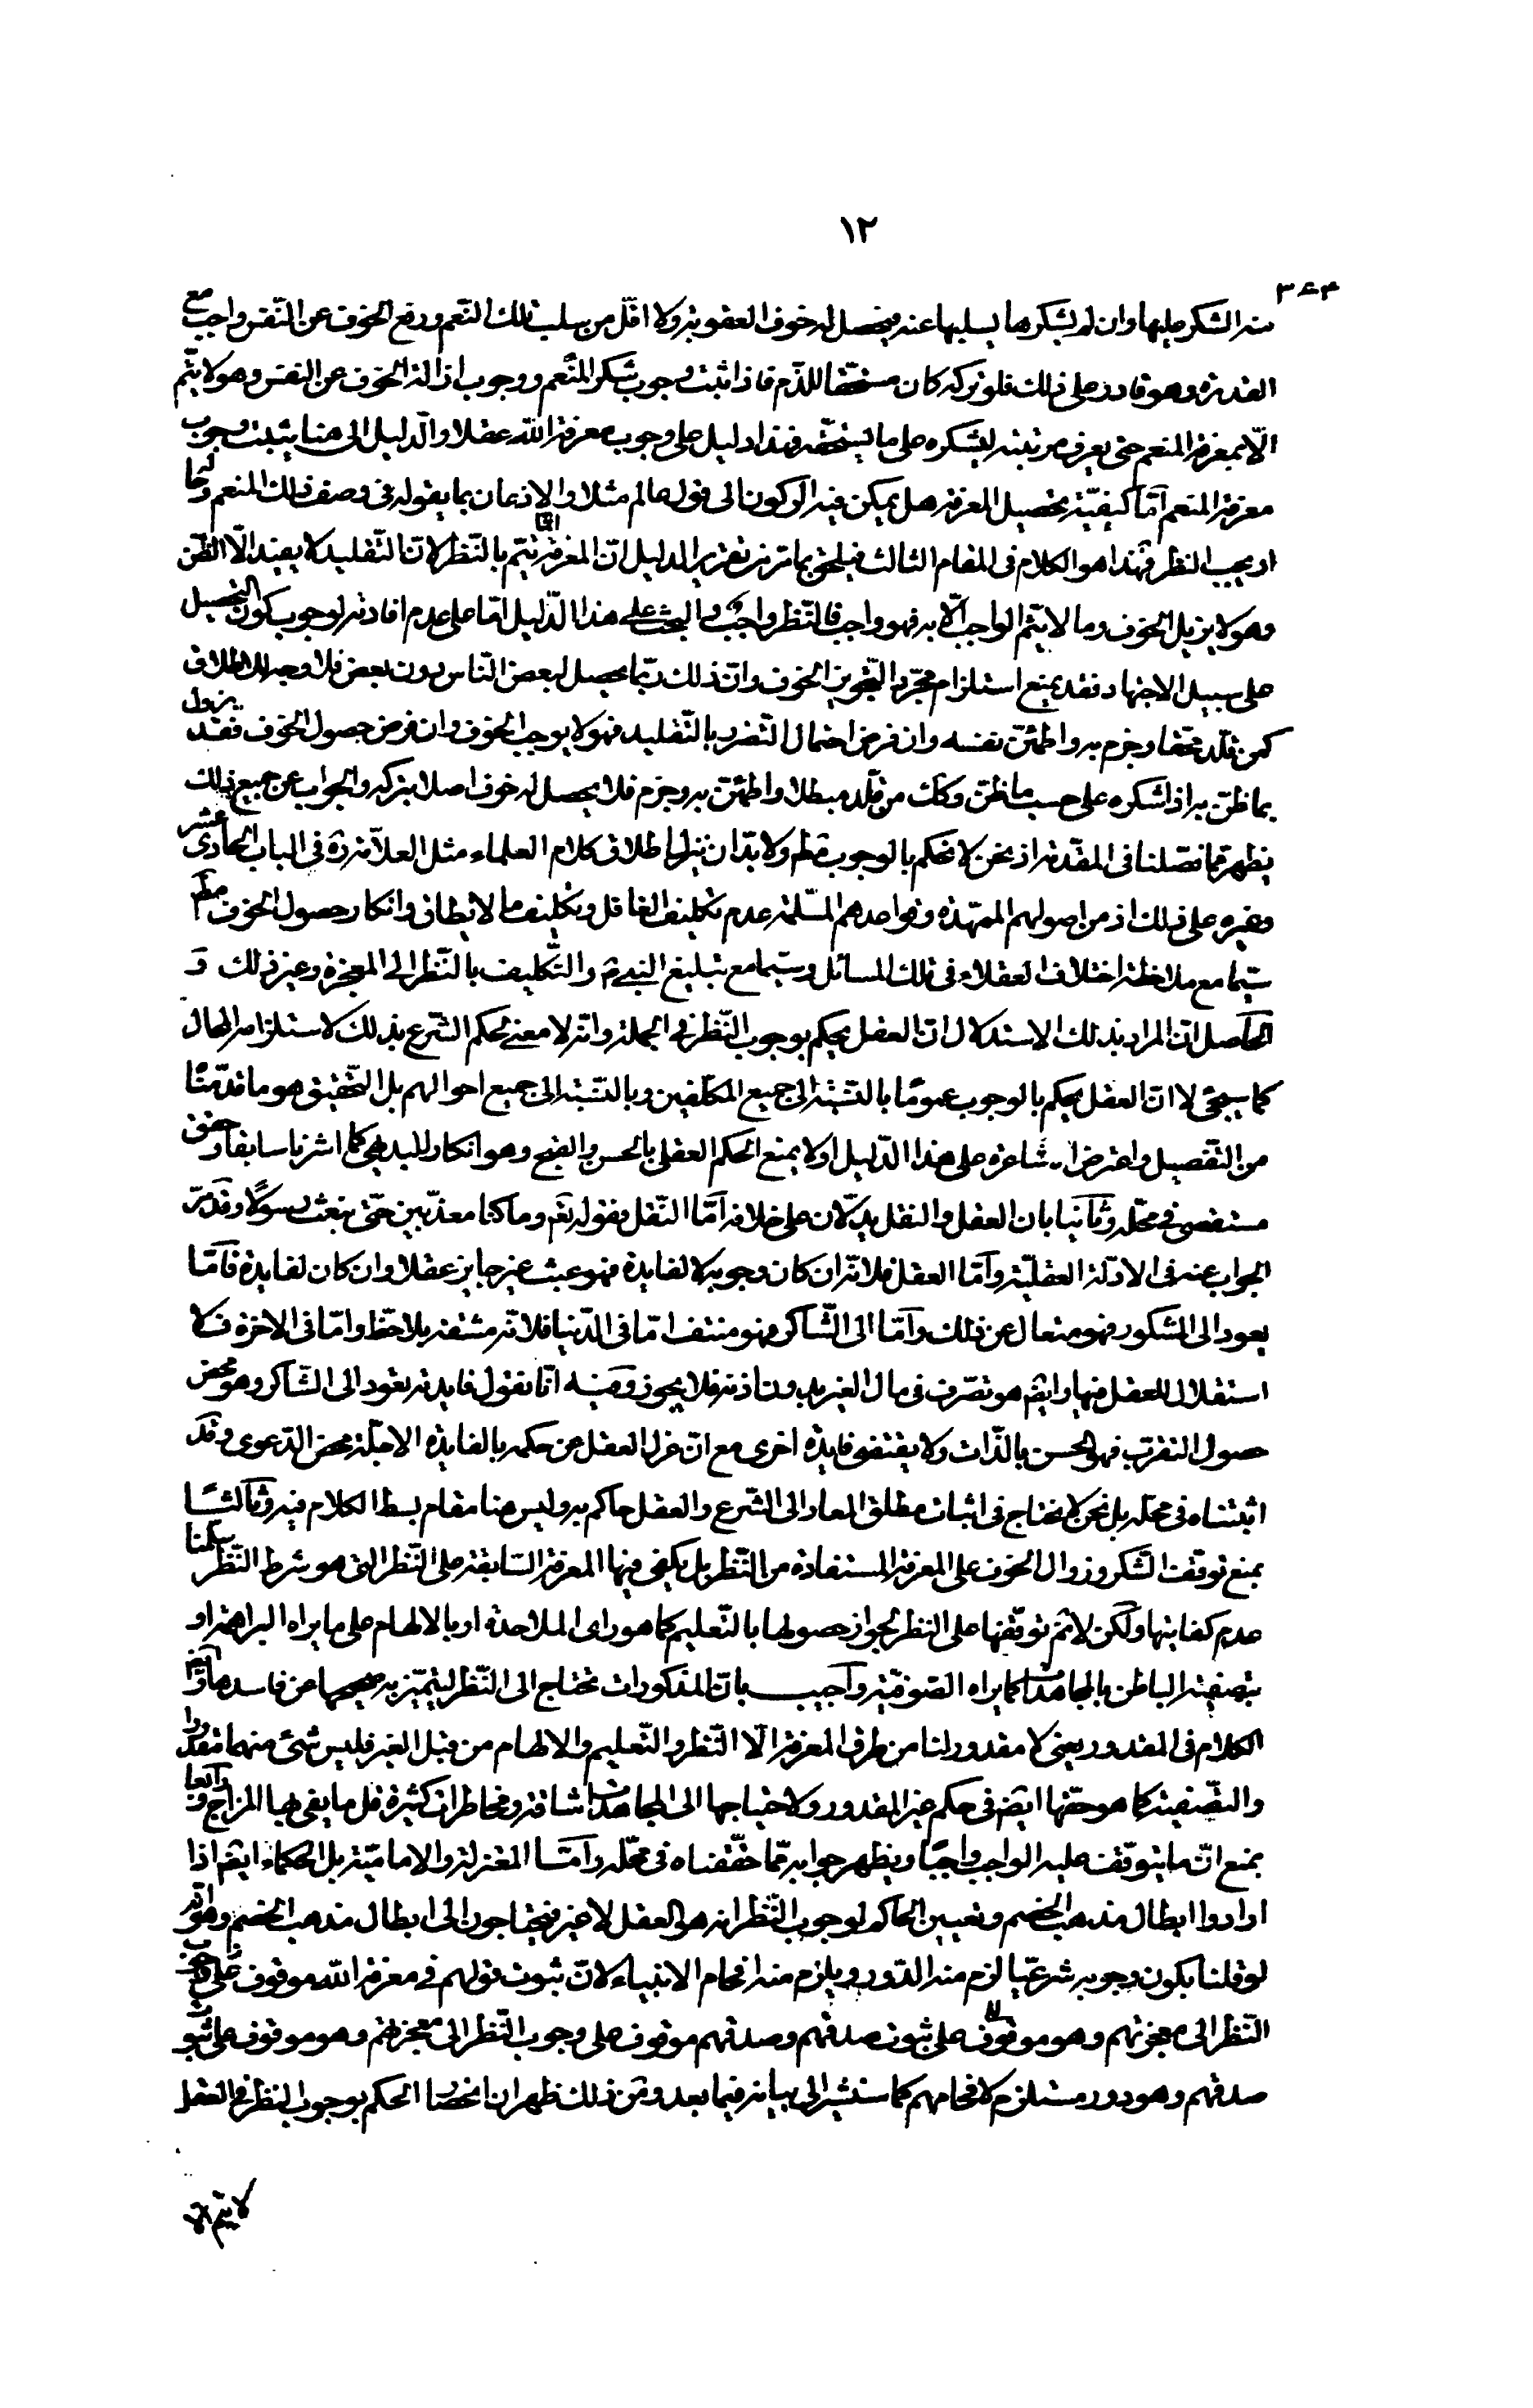 ١٢
٣٦٤
منه الشكر عليها وان لم يشكرها يسلبها عنه فيحصل له خوف العقوبة ولا اقلّ من سلب تلك النّعم ورفع الخوف عن النّفس واجب مع
القدرة وهو قادر على ذلك فلو تركه كان مستحقا للذّم فاذا ثبت وجوب شكر المنعم ووجوب ازالة الخوف عن النفس وهو لا يتّم
الّا بمعرفة المنعم حتى يعرف مرتبته ليشكره على ما يستحقّه فهذا دليل على وجوب معرفة اللّه عقلا والدّليل الى هنا يثبت وجوب
معرفة المنعم امّا كيفيّة تحصيل المعرفة هل يمكن فيه الركون الى قول عالم مثلا والاذعان بما يقوله فى وصف ذلك المنعم
او يجب النظر فهذا هو الكلام فى المقام الثالث فيلحق بما مرّ من تقرير الدليل انّ المعرفة انّما تتم بالنّظر لانّ التّقليد لا يفيد الّا الظّن
وهو لا يزيل الخوف وما لا يتّم الواجب الّا به فهو واجب فالنّظر واجب والبحث على هذا الدّليل امّا على عدم افادته لوجوب كون التّحصيل
على سبيل الاجتهاد فقد يمنع استلزام مجرّد التّجويز الخوف وانّ ذلك ربّما يحصل لبعض النّاس دون بعض فلا وجه للاطلاق
كمن قلّد محقّا وجزم به واطمئنّ نفسه وان فرض احتمال التّضرر بالتّقليد فهو لا يوجب الخوف وان فرض حصول الخوف فقد يزول
بما ظنّ به اذا شكره على حسب ما ظنّ وكك من قلّد مبطلا واطمئنّ به وجزم فلا يحصل له خوف اصلا بتركه والجواب عن جميع ذلك
يظهر ممّا فصّلنا فى المقدّمة اذ نحن لا نحكم بالوجوب مطم ولا بدّ ان ينزل اطلاق كلام العلماء مثل العلّامة ره فى الباب الحادى عشر
وغيره على ذلك اذ من اصولهم الممهّدة وقواعدهم المسلّمة عدم تكليف الغافل وتكليف ما لا يطاق وانكار حصول الخوف مطم
سيّما مع ملاحظة اختلاف العقلاء فى تلك المسائل وسيّما مع تبليغ النبى م والتّكليف بالنّظر الى المعجزة وغير ذلك و
الحاصل انّ المراد بذلك الاستدلال انّ العقل يحكم بوجوب النّظر فى الجملة وانّه لا معنى لحكم الشّرع بذلك لاستلزامه المحال
كما سيجئ لا انّ العقل يحكم بالوجوب عموما بالنّسبة الى جميع المكلّفين وبالنّسبة الى جميع احوالهم بل التّحقيق هو ما قدّمنا
من التّفصيل واعترض الاشاعره على هذا الدّليل اولا بمنع الحكم العقلى بالحسن والقبح وهو انكار للبديهى كما اشرنا سابقا وحقق
مستقصى فى محلّه وثانيا بان العقل والنقل يدلّان على خلافه امّا النّقل فقوله تعم وما كنا معذّبين حتّى نبعث رسولا وقد مرّ
الجواب عنه فى الادلّة العقليّة وامّا العقل فلانّه ان كان وجوبه لا لفايدة فهو عبث غير جايز عقلا وان كان لفايدة فامّا
يعود الى المشكور فهو متعال عن ذلك وامّا الى الشّاكر فهو منتف امّا فى الدّنيا فلانّه مشقة بلا حظّ وامّا فى الاخرة فلا
استقلال للعقل فيها وايضم هو تصرّف فى مال الغير بدون اذنه فلا يجوز وفيه انّا نقول فايدته يعود الى الشّاكر وهو محض
حصول التقرّب فهو لحسن بالذّات ولا يقتضى فايدة اخرى مع انّ عزل العقل عن حكمه بالفايدة الاجلة محض الدّعوى وقد
اثبتناه فى محلّه بل نحن لا نحتاج فى اثبات مطلق المعاد الى الشّرع والعقل حاكم به وليس هنا مقام بسط الكلام فيه وثالثا
بمنع توقّف الشّكر وزوال الخوف على المعرفة المستفادة من النّظر بل يكفى فيها المعرفة السّابقة على النّظر التى هو شرط النّظر سلّمنا
عدم كفايتها ولكن لا نم توقّفها على النظر لجواز حصولها بالتّعليم كما هو راى الملاحدة او بالالهام على ما يراه البراهمة او
بتصفية الباطن بالمجاهدات كما يراه الصّوفيّة واجيب بانّ المذكورات تحتاج الى النّظر ليتميّز به صحيحها عن فاسدها
الكلام فى المقدور يعنى لا مقدور لنا من طرق المعرفة الّا النّظر والتّعليم والالهام من قبل الغير فليس شئ منهما مقدورا
والتّصفية كما هو حقّها ايضم فى حكم غير المقدور ولاحتياجها الى المجاهدات الشاقة ومخاطرات كثيرة قل ما يفى بها المزاج ورابعا
بمنع انّ ما يتوقّف عليه الواجب واجب ويظهر جوابه ممّا حقّقناه فى محلّه وامّا المعتزلة والاماميّة بل الحكماء ايضم اذا
ارادوا ابطال مذهب الخصم وتعيين الحاكم لوجوب النّظر انه هو العقل لا غير فيحتاجون الى ابطال مذهب الخصم وهو انّه
لو قلنا بكون وجوبه شرعيّا لزم منه الدّور ويلزم منه افحام الانبياء لانّ ثبوت قولهم فى معرفة اللّه موقوف على وجوب
النّظر الى معجزتهم وهو موقوف على ثبوت صدقهم وصدقهم موقوف على وجوب النّظر الى معجزهم وهو موقوف على ثبوت
صدقهم وهو دور مستلزم لافحامهم كما سنشير الى بيانه فيما بعد ومن ذلك ظهر ان انحصار الحكم بوجوب النظر فى العقل
لا يتم الا